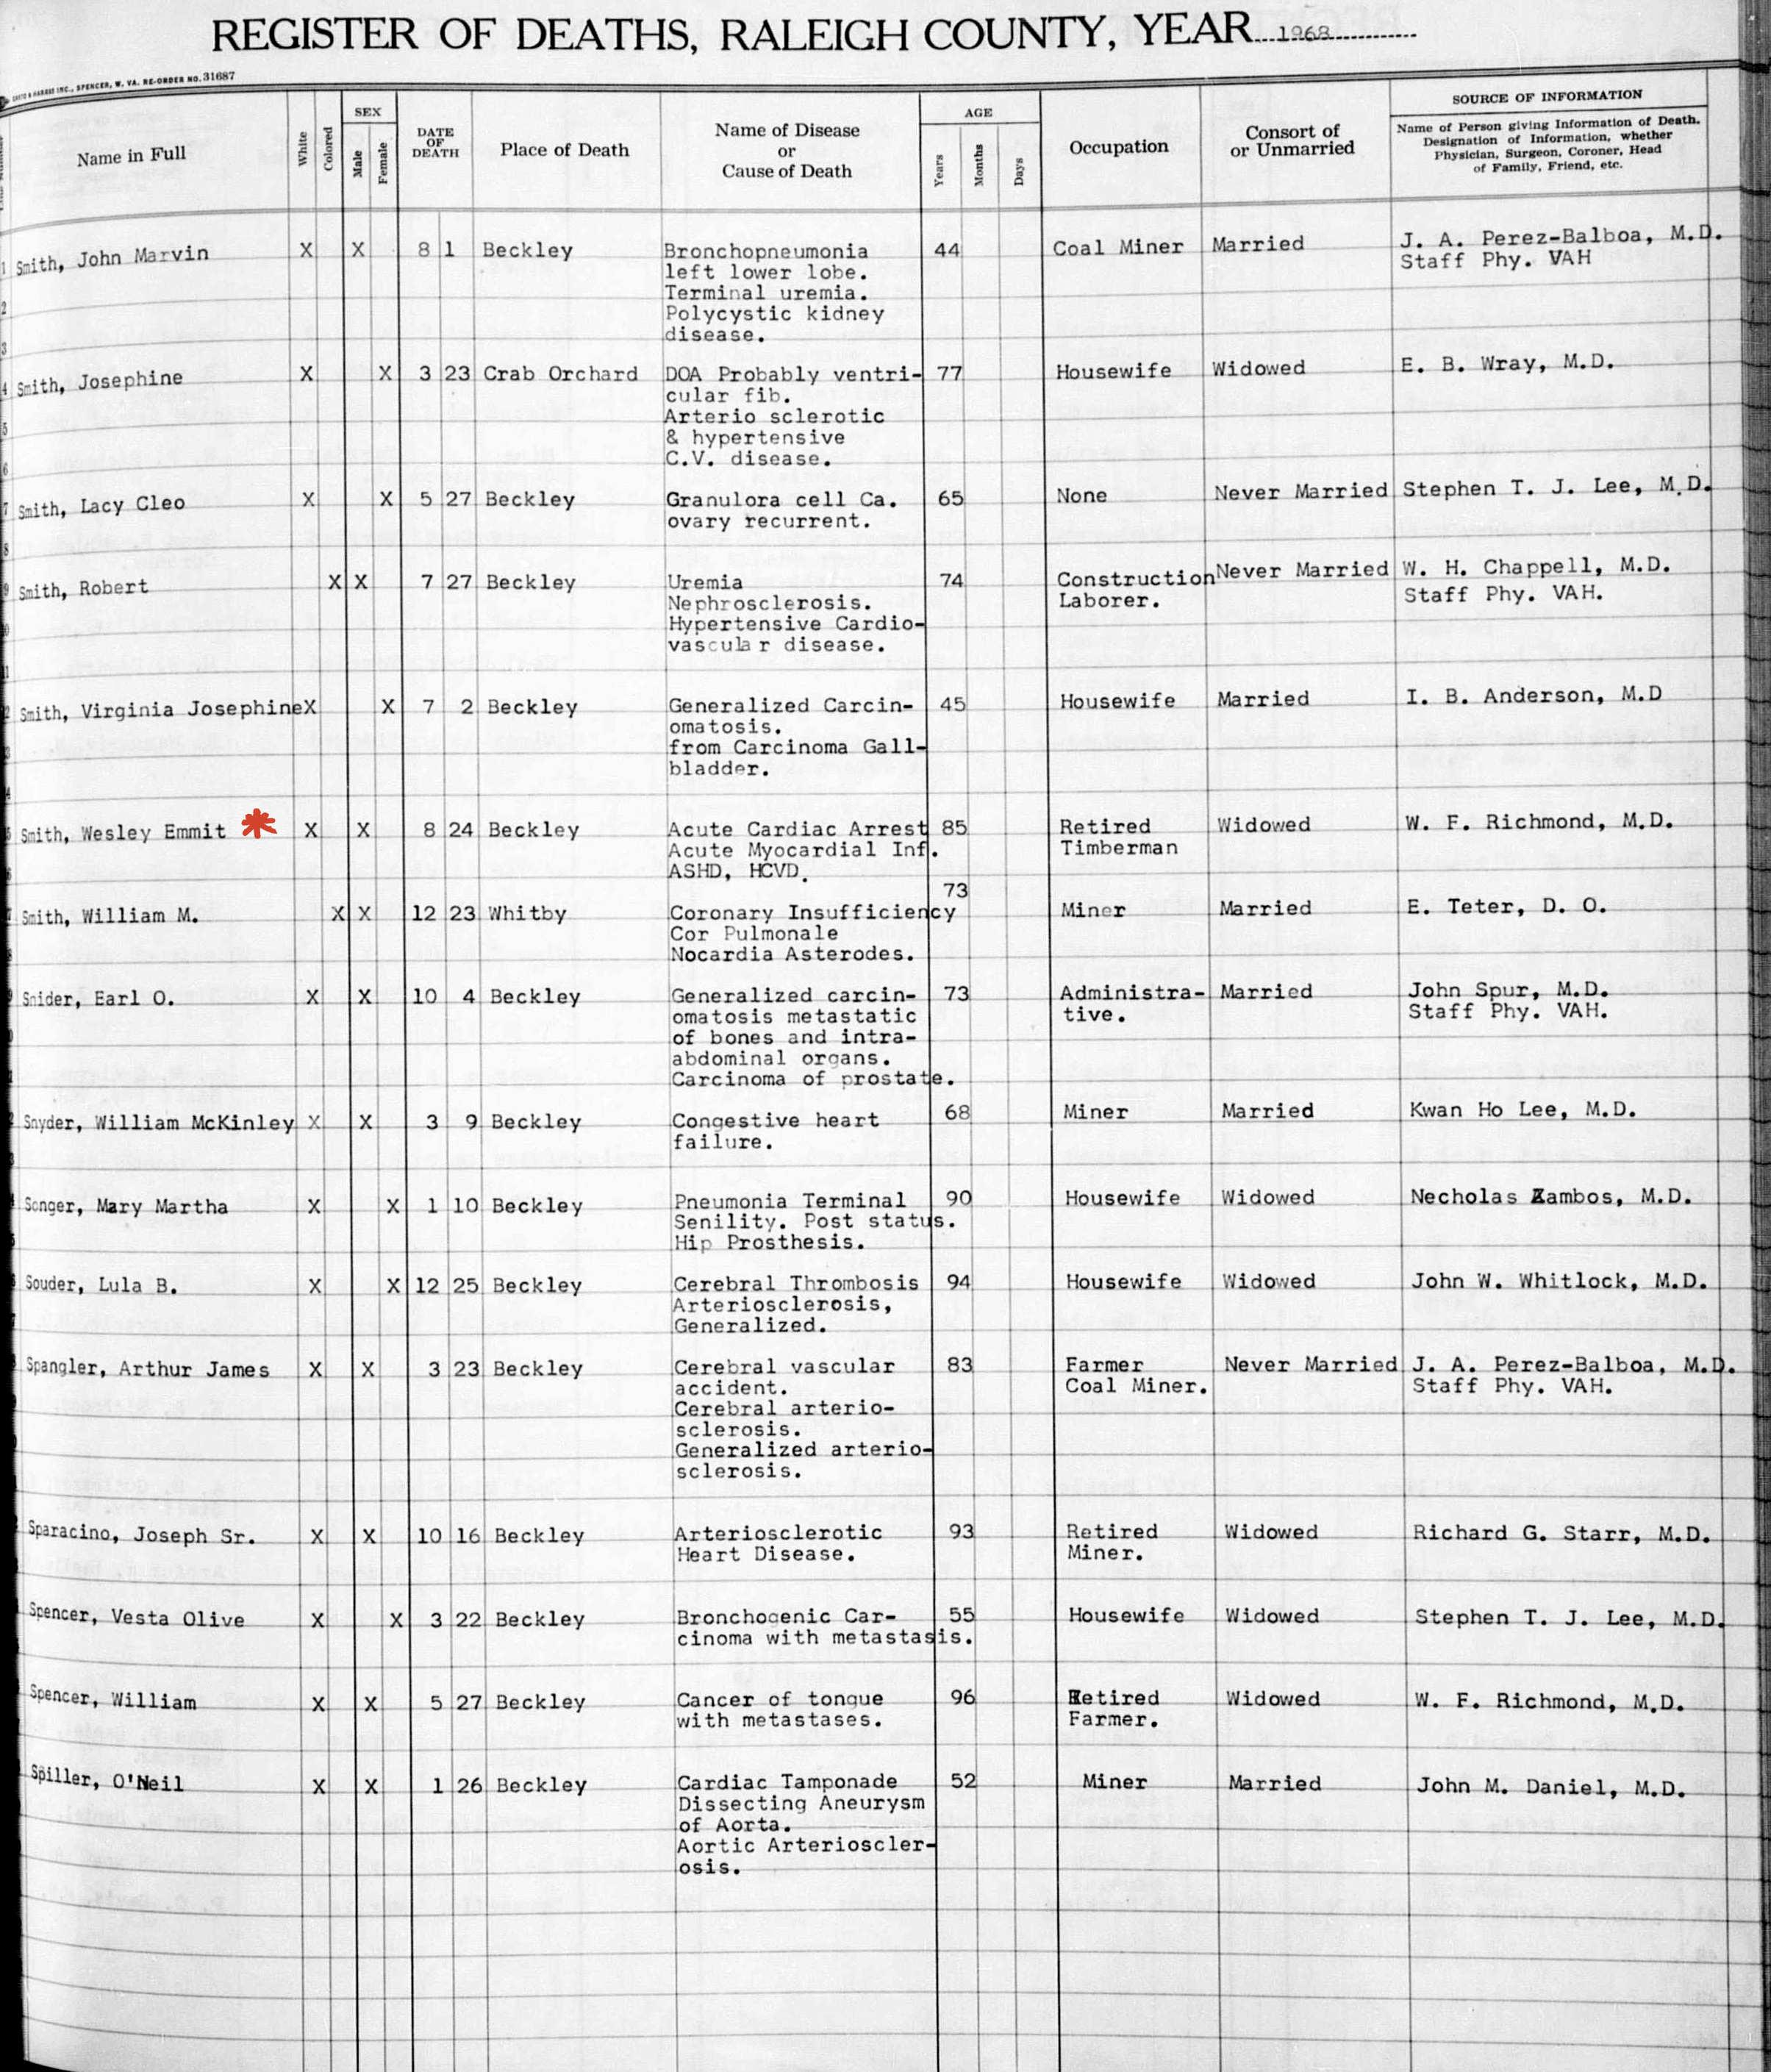 REGISTER OF DEATHS, RALEIGH COUNTY, YEAR 1968
CASTO & HARRIS INC., SPENCER, W. VA. RE-ORDER NO. 31687
Name in Full White Colored SEX Male Female DATE OF DEATH Place of Death Name of Disease or Cause of Death AGE Years Months Days Occupation Consort of or Unmarried SOURCE OF INFORMATION
Name of Person giving Information of Death.
Designation of Information, whether
Physician, Surgeon, Coroner, Head
of Family, Friend, etc.
Smith, John Marvin X X 8 1 Beckley Bronchopneumonia 44 Coal Miner Married J. A. Perez-Balboa, M.D.
left lower lobe. Staff Phy. VAH
Terminal uremia.
Polycystic kidney
disease.
Smith, Josephine X X 3 23 Crab Orchard DOA Probably ventri- 77 Housewife Widowed E. B. Wray, M.D.
cular fib.
Arterio sclerotic
& hypertensive
C.V. disease.
Smith, Lacy Cleo X X 5 27 Beckley Granulora cell Ca. 65 None Never Married Stephen T. J. Lee, M.D.
ovary recurrent.
Smith, Robert X X 7 27 Beckley Uremia 74 Construction Never Married W. H. Chappell, M.D.
Nephrosclerosis. Laborer. Staff Phy. VAH.
Hypertensive Cardio-
vascular disease.
Smith, Virginia Josephine X X 7 2 Beckley Generalized Carcin- 45 Housewife Married I. B. Anderson, M.D
omatosis.
from Carcinoma Gall-
bladder.
Smith, Wesley Emmit X X 8 24 Beckley Acute Cardiac Arrest 85 Retired Widowed W. F. Richmond, M.D.
Acute Myocardial Inf. Timberman
ASHD, HCVD.
Smith, William M. X X 12 23 Whitby Coronary Insufficiency 73 Miner Married E. Teter, D. O.
Cor Pulmonale
Nocardia Asterodes.
Snider, Earl O. X X 10 4 Beckley Generalized carcin- 73 Administra- Married John Spur, M.D.
omatosis metastatic tive. Staff Phy. VAH.
of bones and intra-
abdominal organs.
Carcinoma of prostate.
Snyder, William McKinley X X 3 9 Beckley Congestive heart 68 Miner Married Kwan Ho Lee, M.D.
failure.
Songer, Mary Martha X X 1 10 Beckley Pneumonia Terminal 90 Housewife Widowed Necholas Zambos, M.D.
Senility. Post status.
Hip Prosthesis.
Souder, Lula B. X X 12 25 Beckley Cerebral Thrombosis 94 Housewife Widowed John W. Whitlock, M.D.
Arteriosclerosis,
Generalized.
Spangler, Arthur James X X 3 23 Beckley Cerebral vascular 83 Farmer Never Married J. A. Perez-Balboa, M.D.
accident. Coal Miner. Staff Phy. VAH.
Cerebral arterio-
sclerosis.
Generalized arterio-
sclerosis.
Sparacino, Joseph Sr. X X 10 16 Beckley Arteriosclerotic 93 Retired Widowed Richard G. Starr, M.D.
Heart Disease. Miner.
Spencer, Vesta Olive X X 3 22 Beckley Bronchogenic Car- 55 Housewife Widowed Stephen T. J. Lee, M.D.
cinoma with metastasis.
Spencer, William X X 5 27 Beckley Cancer of tongue 96 Retired Widowed W. F. Richmond, M.D.
with metastases. Farmer.
Spiller, O'Neil X X 1 26 Beckley Cardiac Tamponade 52 Miner Married John M. Daniel, M.D.
Dissecting Aneurysm
of Aorta.
Aortic Arterioscler-
osis.